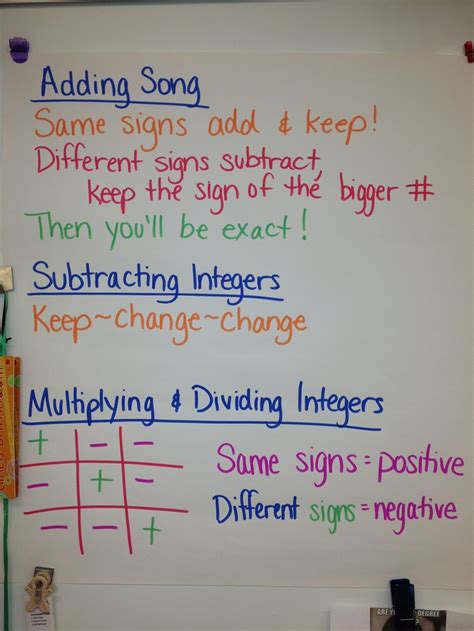 Adding Song
Same signs add & keep!
Different signs subtract,
keep the sign of the bigger #
Then you'll be exact!
Subtracting Integers
Keep~Change~Change
Multiplying & Dividing Integers
+ - -
- + -
- - +
Same signs = positive
Different signs = negative
ARE YOU DEGREE